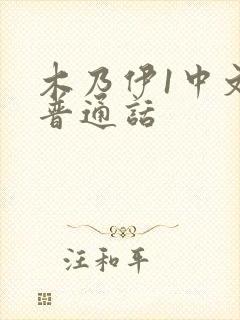 木乃伊1中文
普通话
汪和平